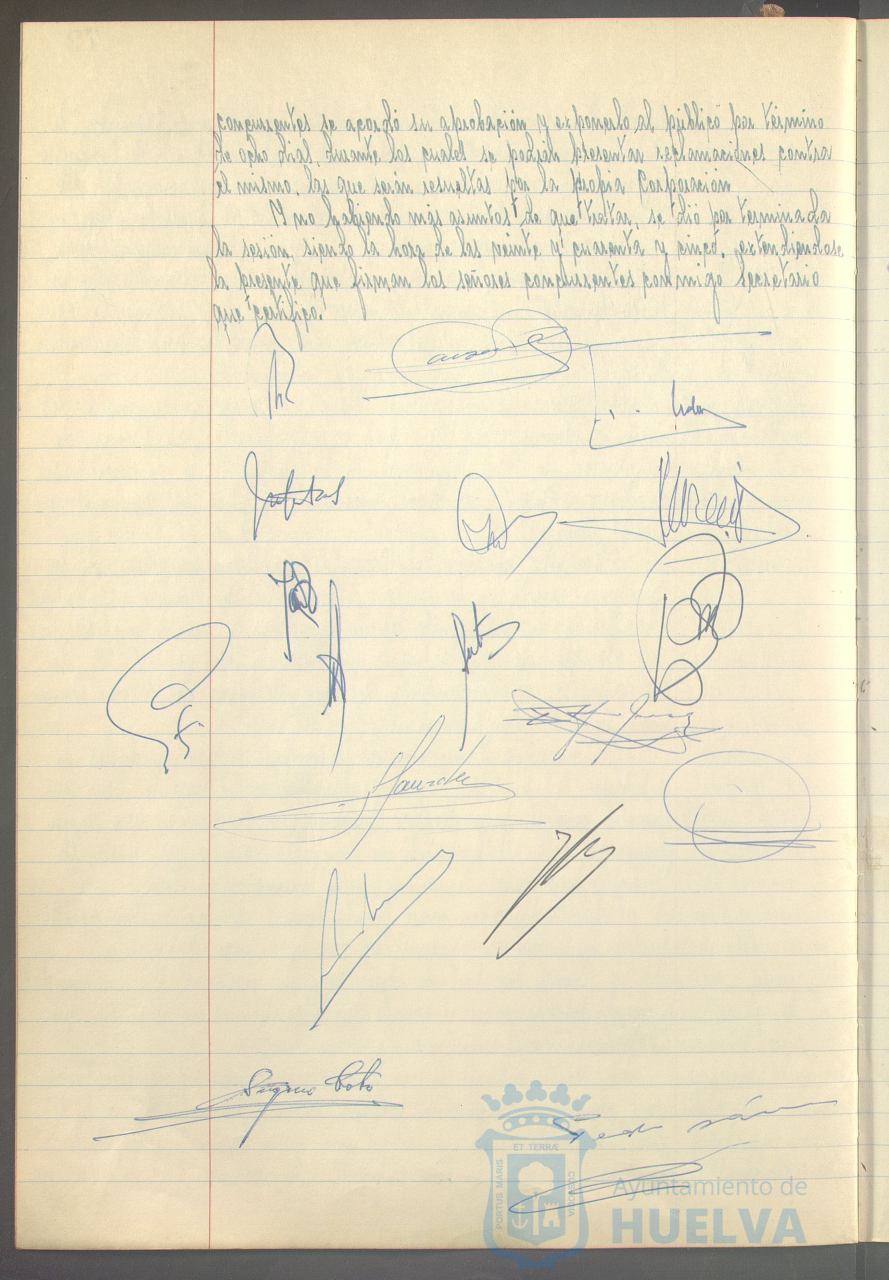 concurrentes se acordó su aprobación y exponerlo al público por término
de ocho dias, durante los cuales se podrán presentar reclamaciones contra
el mismo, las que serán resueltas por la propia Corporación
Y no habiendo más asuntos de que tratar, se dió por terminada
la sesión, siendo la hora de las veinte y cuarenta y cinco, extendiendose
la presente que firman los señores concurrentes conmigo Secretario
que certifico.
ET TERRÆ
PORTUS MARIS
CUSTODIA
Ayuntamiento de
HUELVA